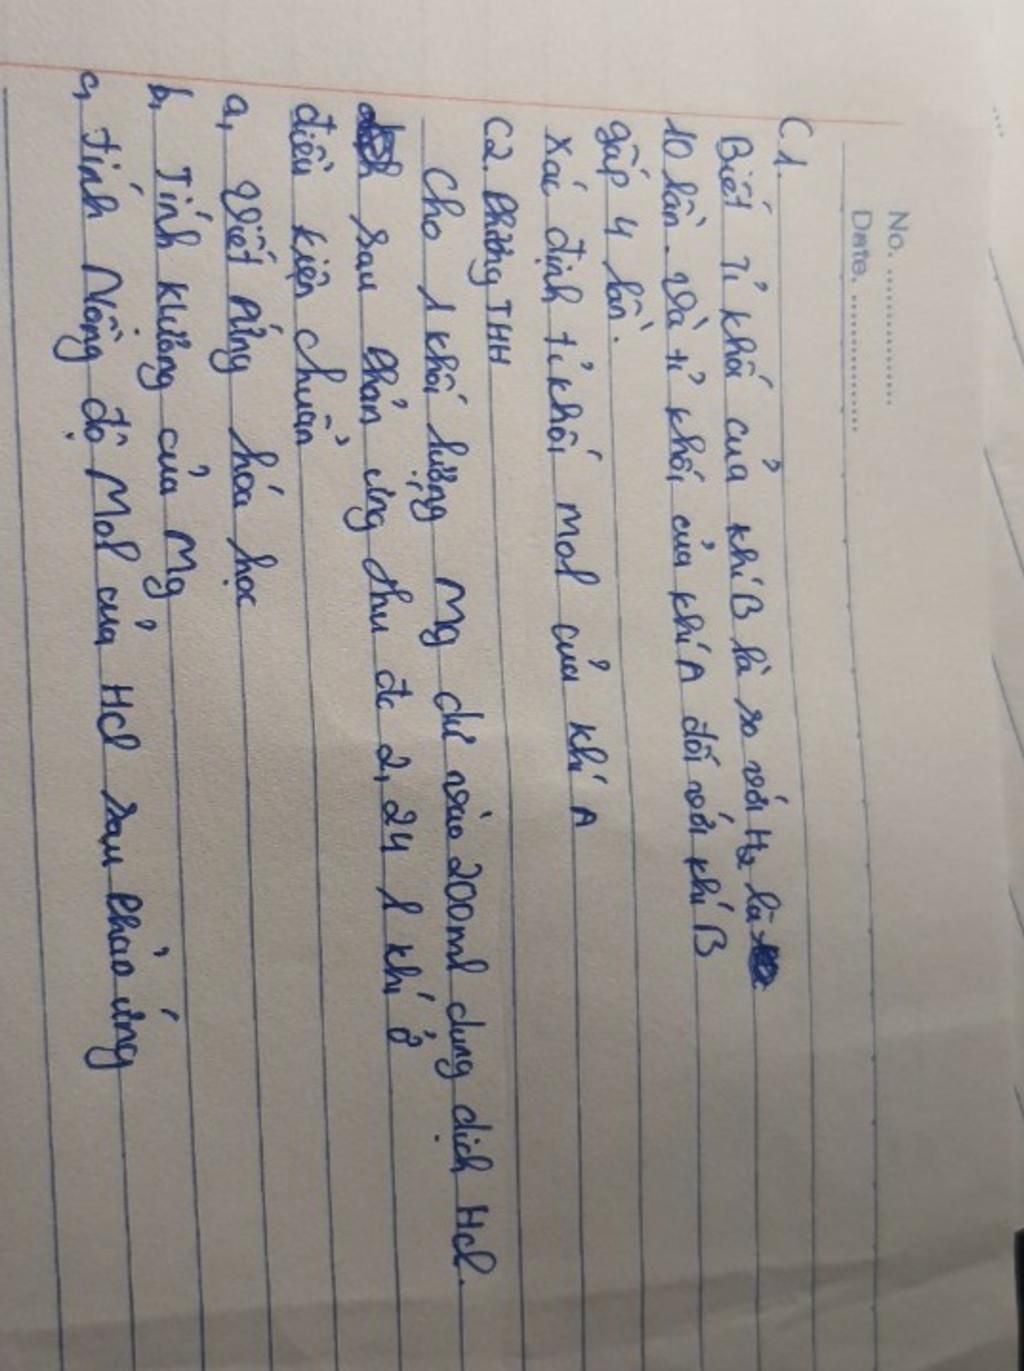 No. ................
Date. ................
C1.
Biết tỉ khối của khí B là so với H2 là
10 lần. và tỉ khối của khí A đối với khí B
gấp 4 lần.
Xác định tỉ khối mol của khí A
C2. Phương THH
Cho 1 khối lượng Mg dư vào 200ml dung dịch Hcl.
sau phản ứng thu đc 2,24 l khí ở
điều kiện chuẩn
a, Viết Pứng hóa học
b, Tính klượng của Mg
c, Tính Nồng độ Mol của Hcl sau phảo ứng